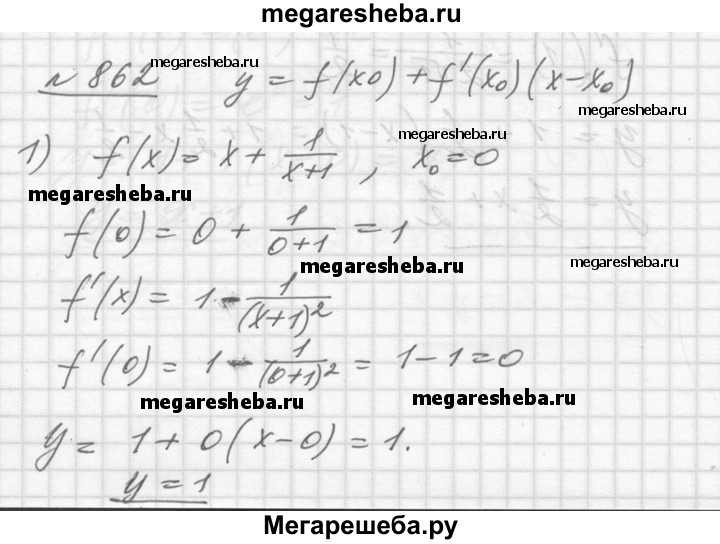 megaresheba.ru
№ 862 megaresheba.ru y = f(x0) + f'(x₀)(x-x₀)
megaresheba.ru
1) f(x) = x + 1/(x+1), x₀ = 0
megaresheba.ru
megaresheba.ru
f(0) = 0 + 1/(0+1) = 1
megaresheba.ru
megaresheba.ru
f'(x) = 1 - 1/(x+1)²
f'(0) = 1 - 1/(0+1)² = 1-1=0
megaresheba.ru
megaresheba.ru
y = 1 + 0(x-0) = 1.
y = 1
Мегарешеба.ру